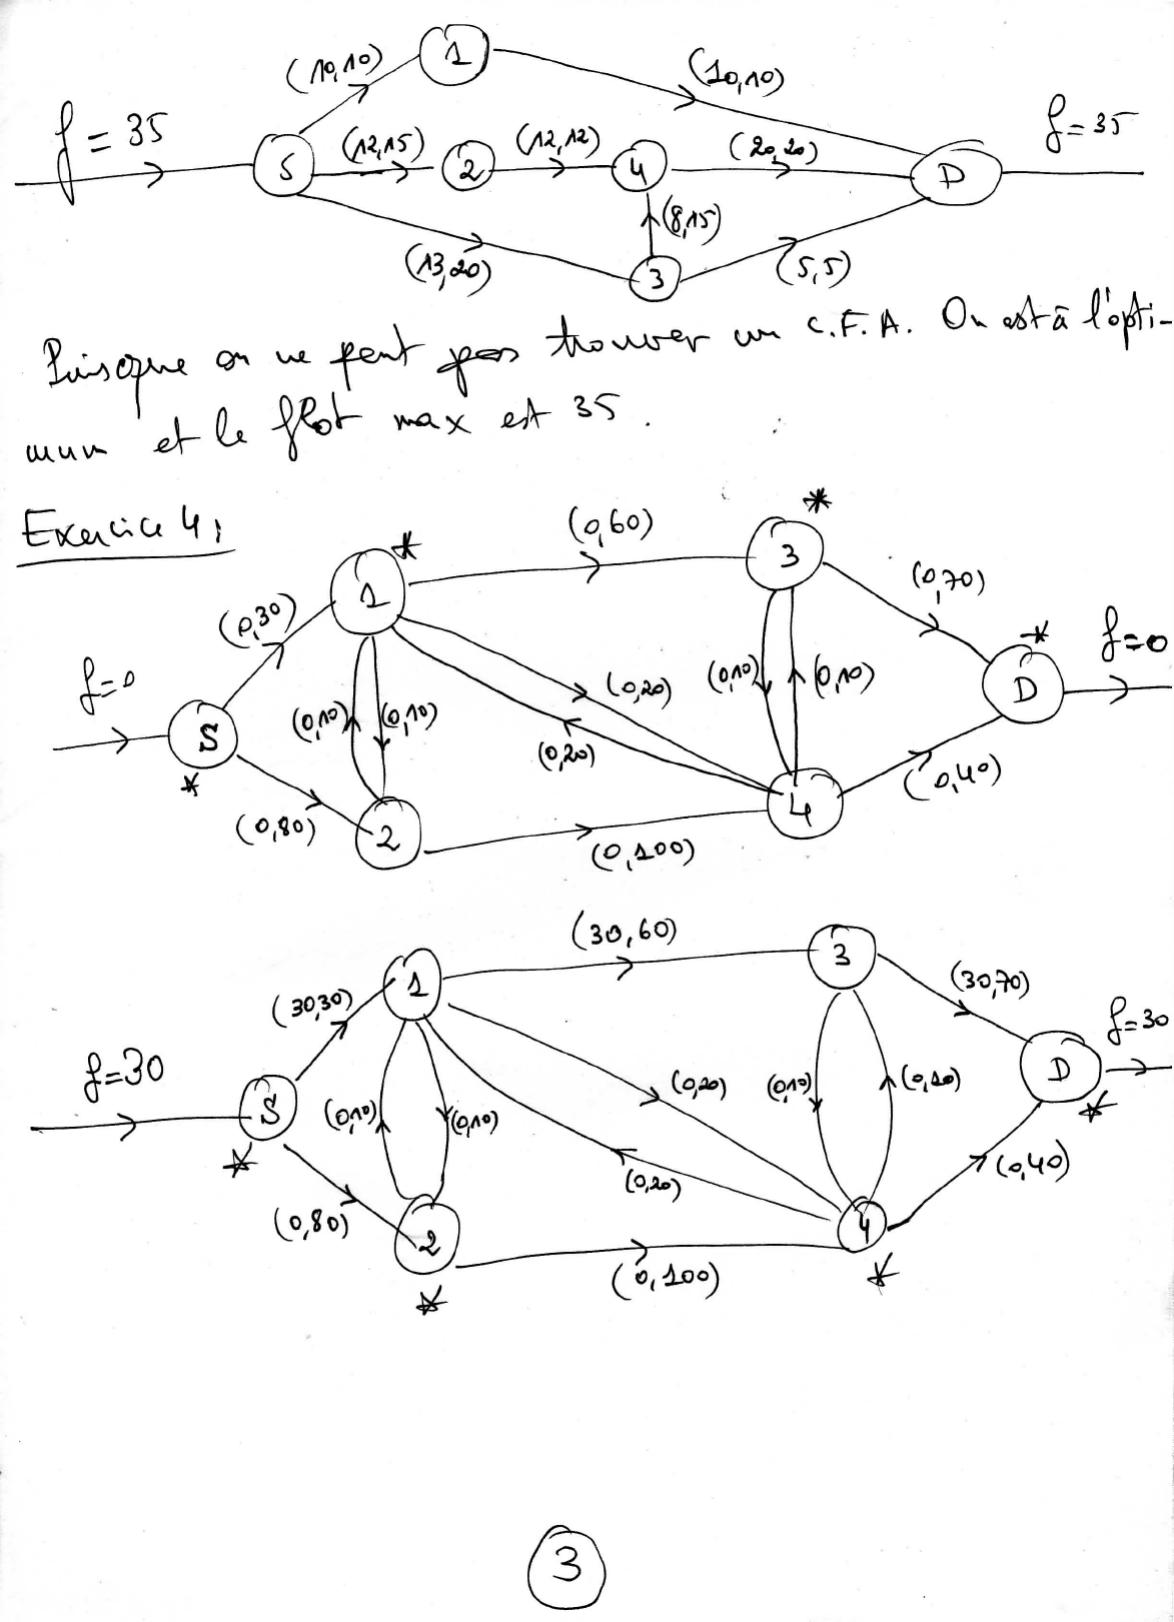 (10,10) 1 (10,10)
f = 35 S (12,15) 2 (12,12) 4 (20,20) D f=35
(8,15)
(13,20) 3 (5,5)
Puisque on ne peut pas trouver un C.F.A. On est à l'opti-
mum et le flot max est 35.
Exercice 4:
* (0,60) *
1 3 (0,70)
(0,30) * f=0
f=0 (0,20) (0,10) (0,10) D
S (0,10) (0,10) (0,20)
* (0,40)
(0,80) 2 4
(0,100)
(30,60)
1 3 (30,70)
(30,30) f=30
f=30 (0,20) (0,10) (0,10) D
S (0,10) (0,10) *
* (0,20) (0,40)
(0,80) 2 4
* (0,100) *
3